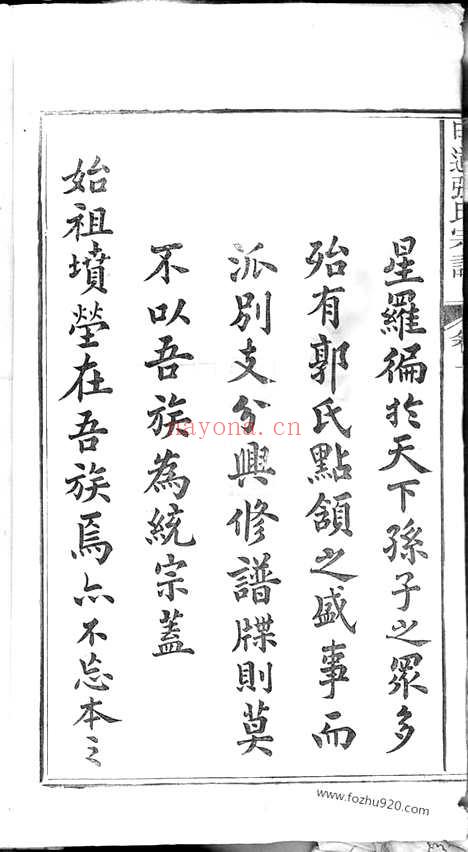 星羅徧於天下孫子之眾多
殆有郭氏點頷之盛事而
派別支分興修譜牒則莫
不以吾族為統宗蓋
始祖墳塋在吾族焉亦不忘本之
張氏宗譜
nayona.cn
www.fozhu920.com